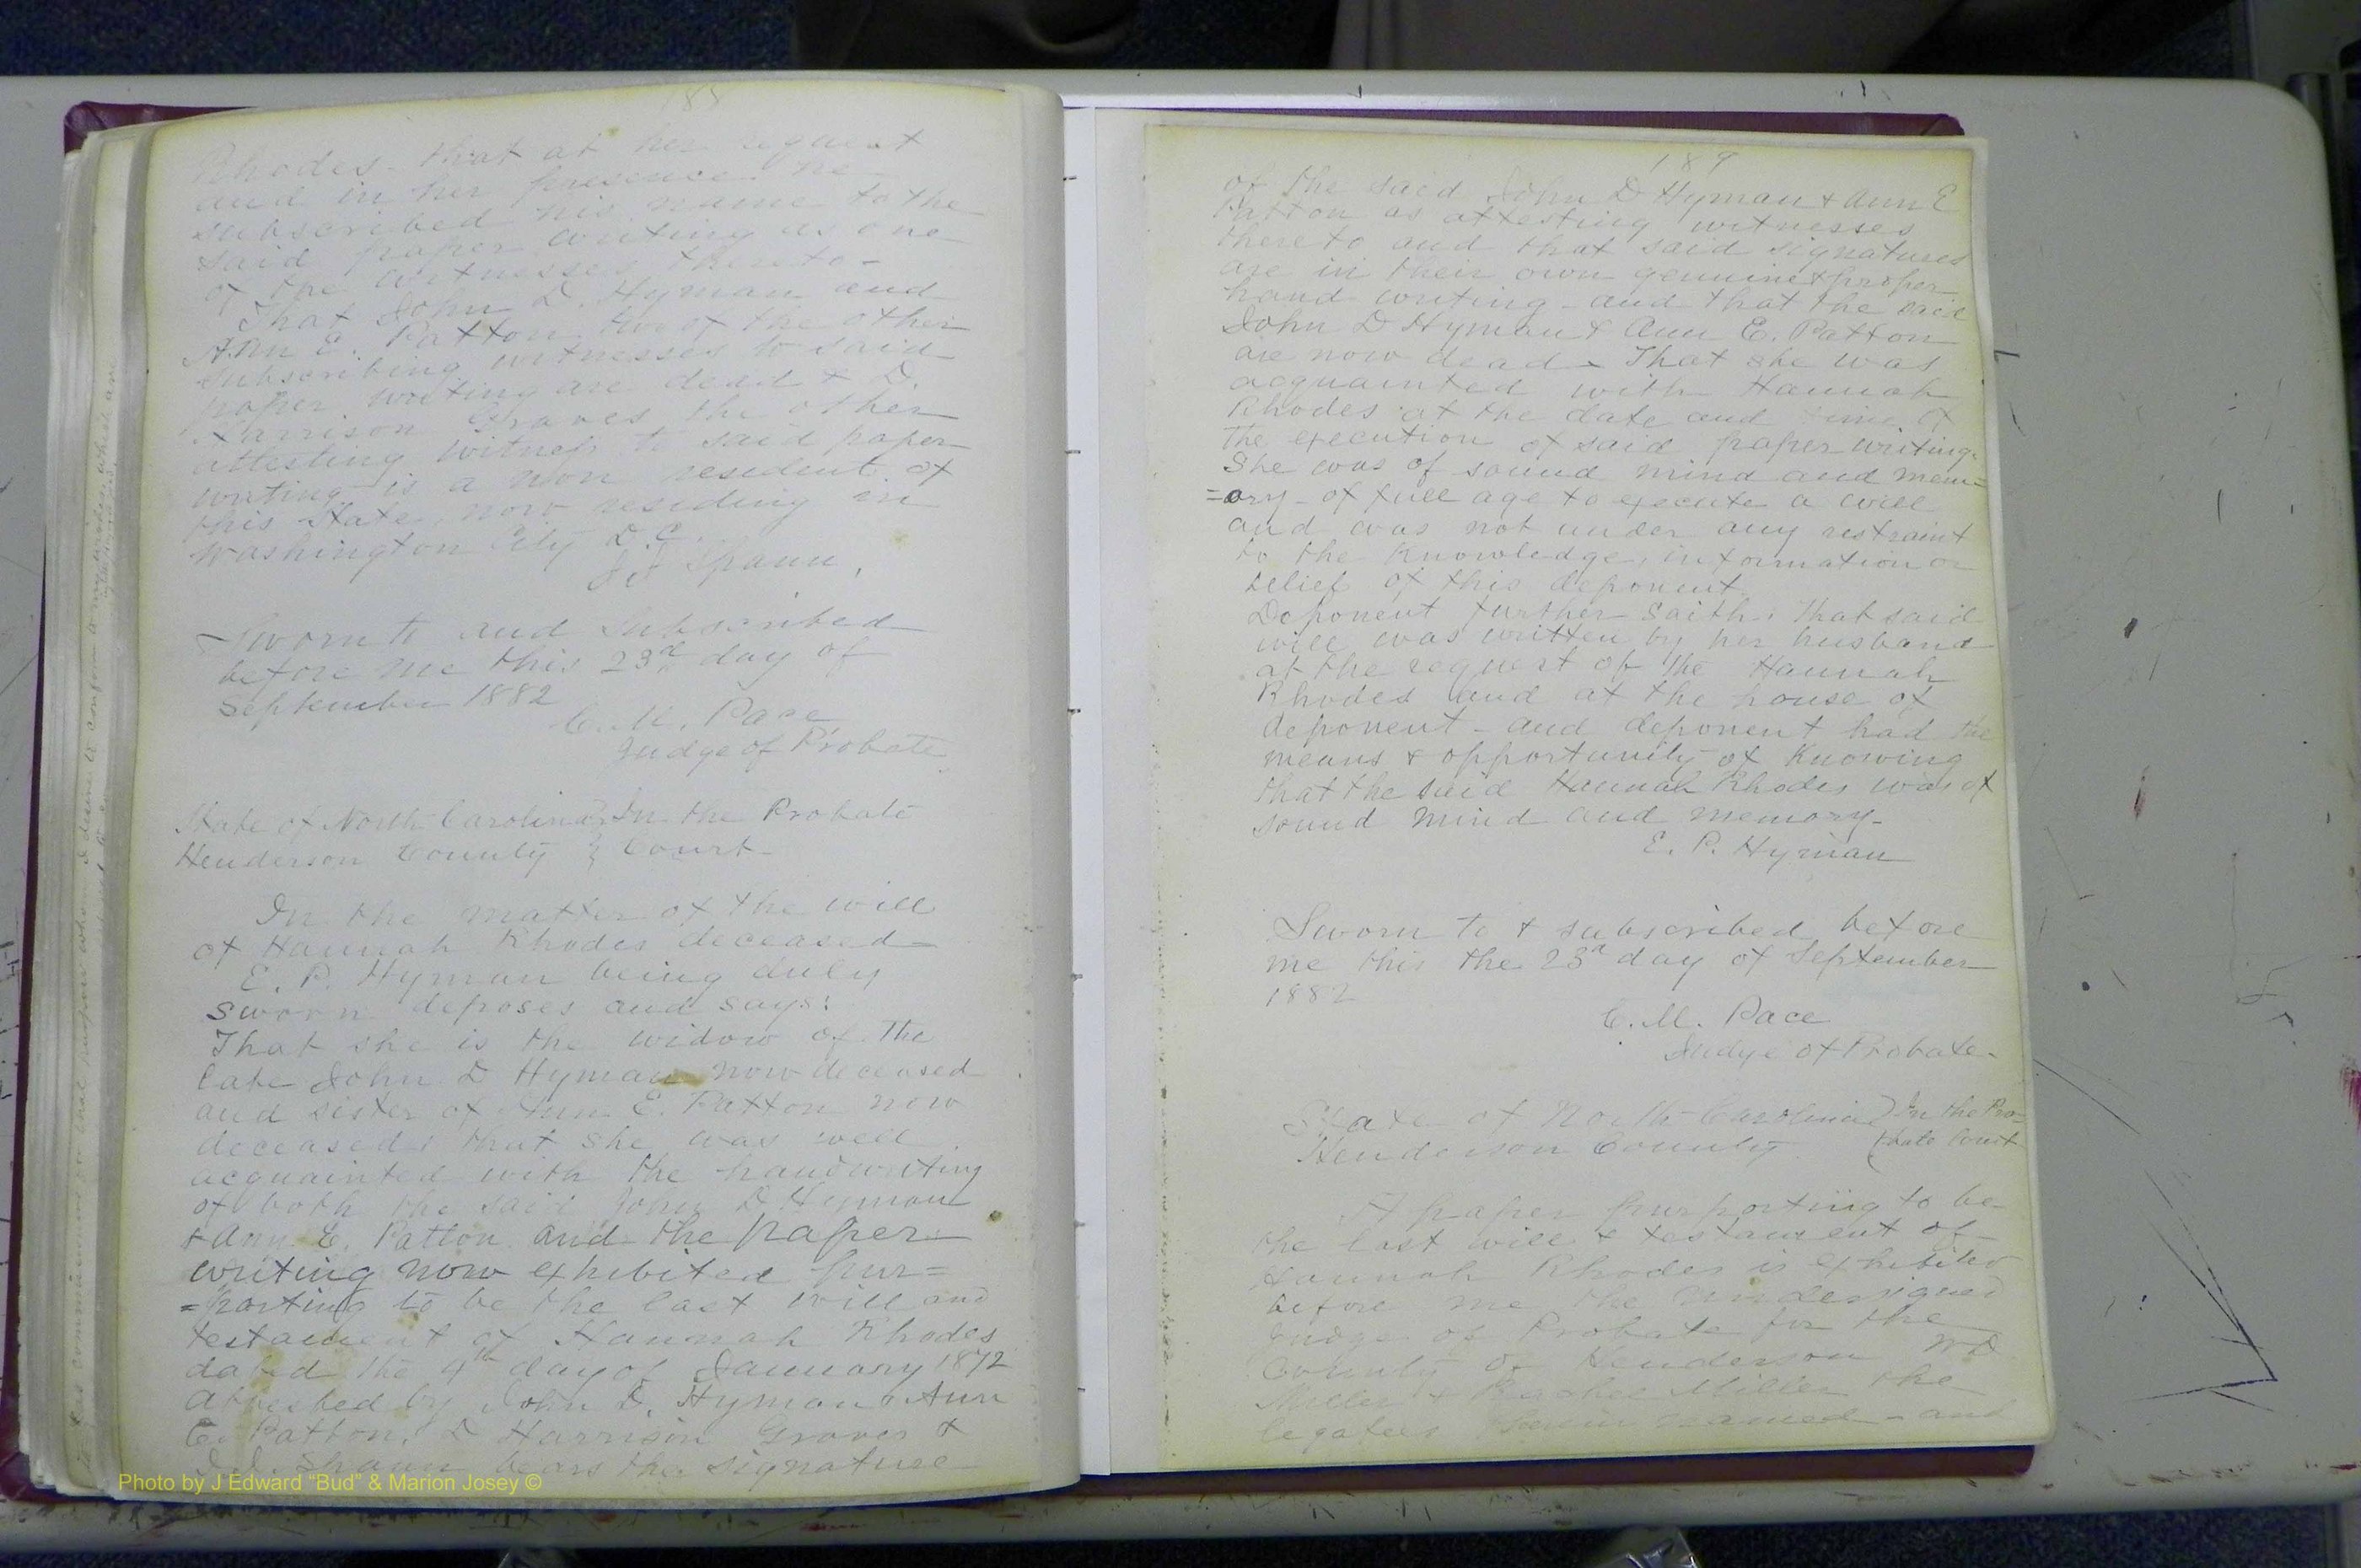 88
Rhodes - that at her request
and in her presence he
subscribed his name to the
said paper writing as one
of the witnesses thereto -
That John D. Hyman and
Ann E. Patton two of the other
subscribing witnesses to said
paper writing are dead & D.
Harrison Graves the other
attesting witness to said paper
writing is a non resident of
this State, now residing in
Washington City D.C.
J J Spann,
Sworn to and subscribed
before me this 23d day of
September 1882
C. M. Pace
Judge of Probate
State of North Carolina } In the Probate
Henderson County } Court -
In the matter of the will
of Hannah Rhodes deceased -
E. P. Hyman being duly
sworn deposes and says:
That she is the widow of the
late John D Hyman now deceased
and sister of Ann E. Patton now
deceased; that she was well
acquainted with the handwriting
of both the said John D Hyman
& Ann E. Patton and the paper
writing now exhibited pur=
=porting to be the last will and
testament of Hannah Rhodes
dated the 4th day of January 1872
attested by John D. Hyman & Ann
E. Patton, D Harrison Graves &
J J. Spann bears the signature
Photo by J Edward "Bud" & Marion Josey ©
189
of the said John D Hyman & Ann E
Patton as attesting witnesses
thereto and that said signatures
are in their own genuine & proper
hand writing - and that the said
John D Hyman & Ann E. Patton
are now dead - That she was
acquainted with Hannah
Rhodes at the date and time of
the execution of said paper writing.
She was of sound mind and mem=
=ory - of full age to execute a will
and was not under any restraint
to the knowledge, information or
belief of this deponent
Deponent further saith: That said
will was written by her husband
at the request of the Hannah
Rhodes and at the house of
deponent - and deponent had the
means & opportunity of knowing
that the said Hannah Rhodes was of
sound mind and memory -
E. P. Hyman
Sworn to & subscribed before
me this the 23d day of September
1882
C. M. Pace
Judge of Probate -
State of North Carolina } In the Pro=
Henderson County } bate Court
A paper purporting to be
the last will & testament of
Hannah Rhodes is exhibited
before me the undersigned
Judge of Probate for the
County of Henderson
Miller & Rachel Miller the
legatees therein named - and